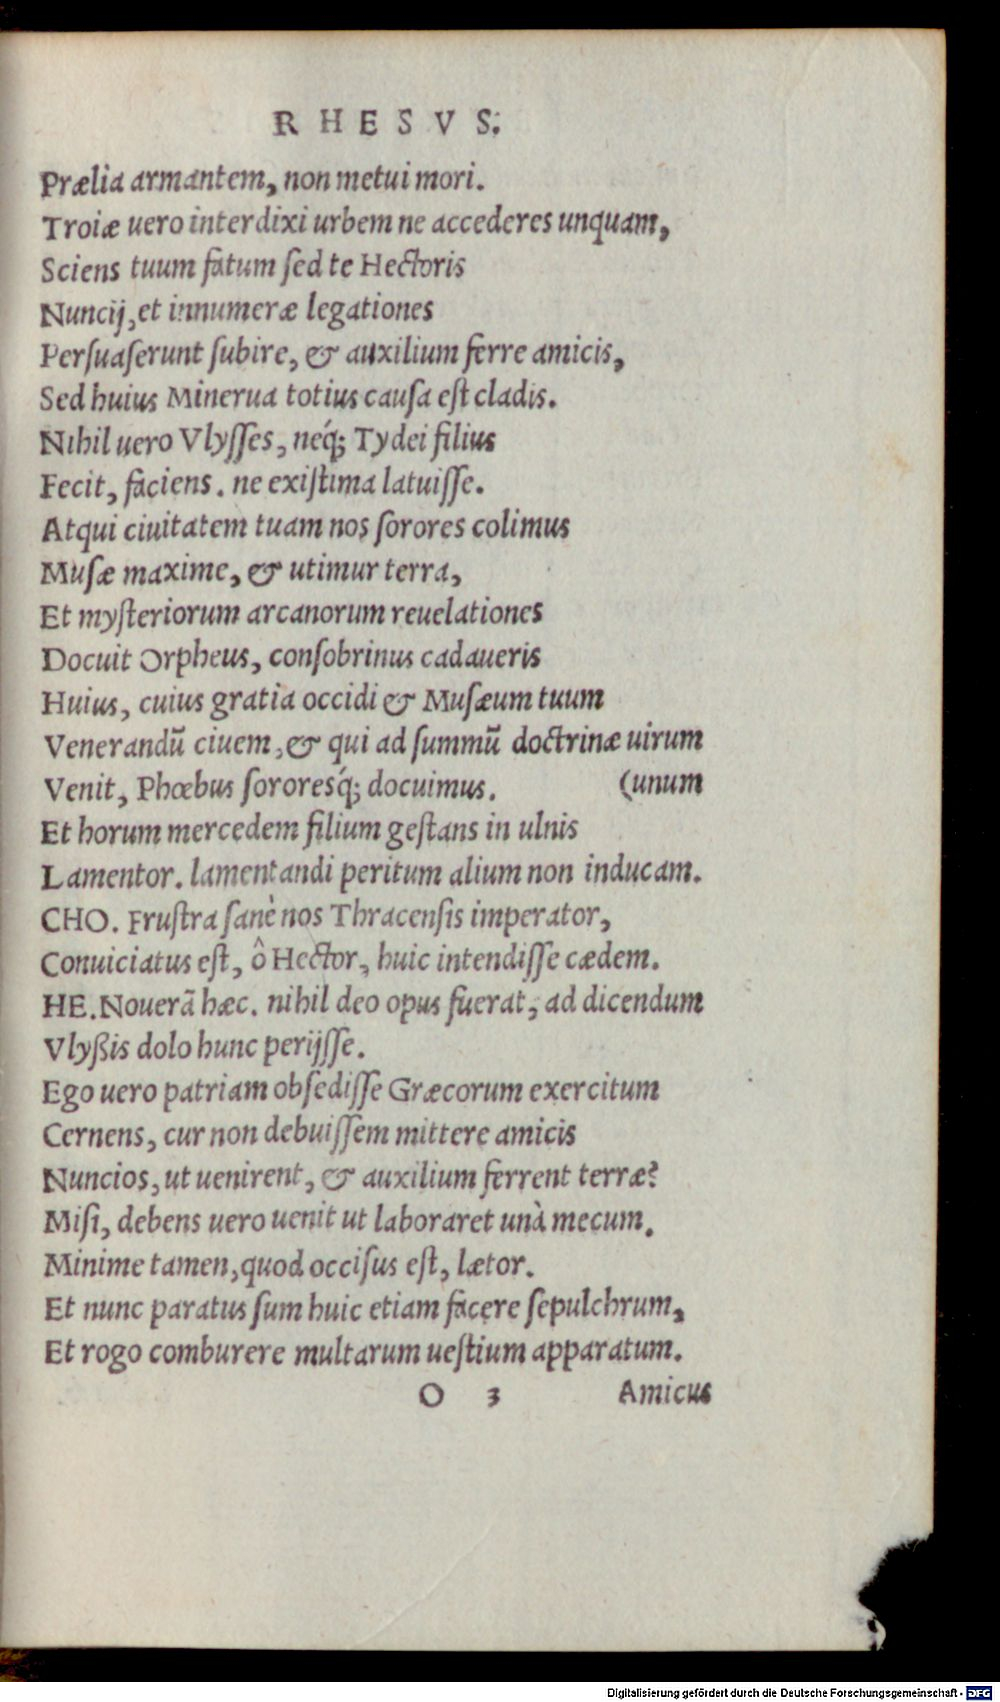 RHESVS.
Prælia armantem, non metui mori.
Troiæ uero interdixi urbem ne accederes unquam,
Sciens tuum fatum ſed te Hectoris
Nuncij, et innumeræ legationes
Perſuaſerunt ſubire, & auxilium ferre amicis,
Sed huius Minerua totius cauſa eſt cladis.
Nihil uero Vlyſſes, neq́; Tydei filius
Fecit, faciens. ne exiſtima latuiſſe.
Atqui ciuitatem tuam nos ſorores colimus
Muſæ maxime, & utimur terra,
Et myſteriorum arcanorum reuelationes
Docuit Orpheus, conſobrinus cadaueris
Huius, cuius gratia occidi & Muſæum tuum
Venerandũ ciuem, & qui ad ſummũ doctrinæ uirum
Venit, Phœbus ſororesq́; docuimus. (unum
Et horum mercedem filium geſtans in ulnis
Lamentor. lamentandi peritum alium non inducam.
CHO. Fruſtra ſanè nos Thracenſis imperator,
Conuiciatus eſt, ô Hector, huic intendiſſe cædem.
HE. Nouerã hæc. nihil deo opus fuerat, ad dicendum
Vlyßis dolo hunc perijſſe.
Ego uero patriam obſediſſe Græcorum exercitum
Cernens, cur non debuiſſem mittere amicis
Nuncios, ut uenirent, & auxilium ferrent terræ?
Miſi, debens uero uenit ut laboraret unà mecum.
Minime tamen, quod occiſus eſt, lætor.
Et nunc paratus ſum huic etiam facere ſepulchrum,
Et rogo comburere multarum ueſtium apparatum.
O 3 Amicus
Digitalisierung gefördert durch die Deutsche Forschungsgemeinschaft - DFG